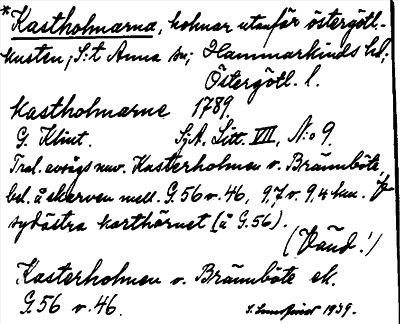 *Kastholmarna, holmar utanför östergötl.-
kusten, S:t Anna sn; Hammarkinds hd;
Östergötl. l.
Kastholmarne 1789.
G. Klint. SjA. Litt. VII, N:o 9.
Trol. avsågs nuv. Kasterholmen v. Brännböte
bel. å skarven mell. G.56 v. 46, 9,7 v. 9,4 km. fr
sydöstra karthörnet (å G.56).
(Vänd!)
Kasterholmen v. Brännböte ek.
G.56 v. 46.
1939.